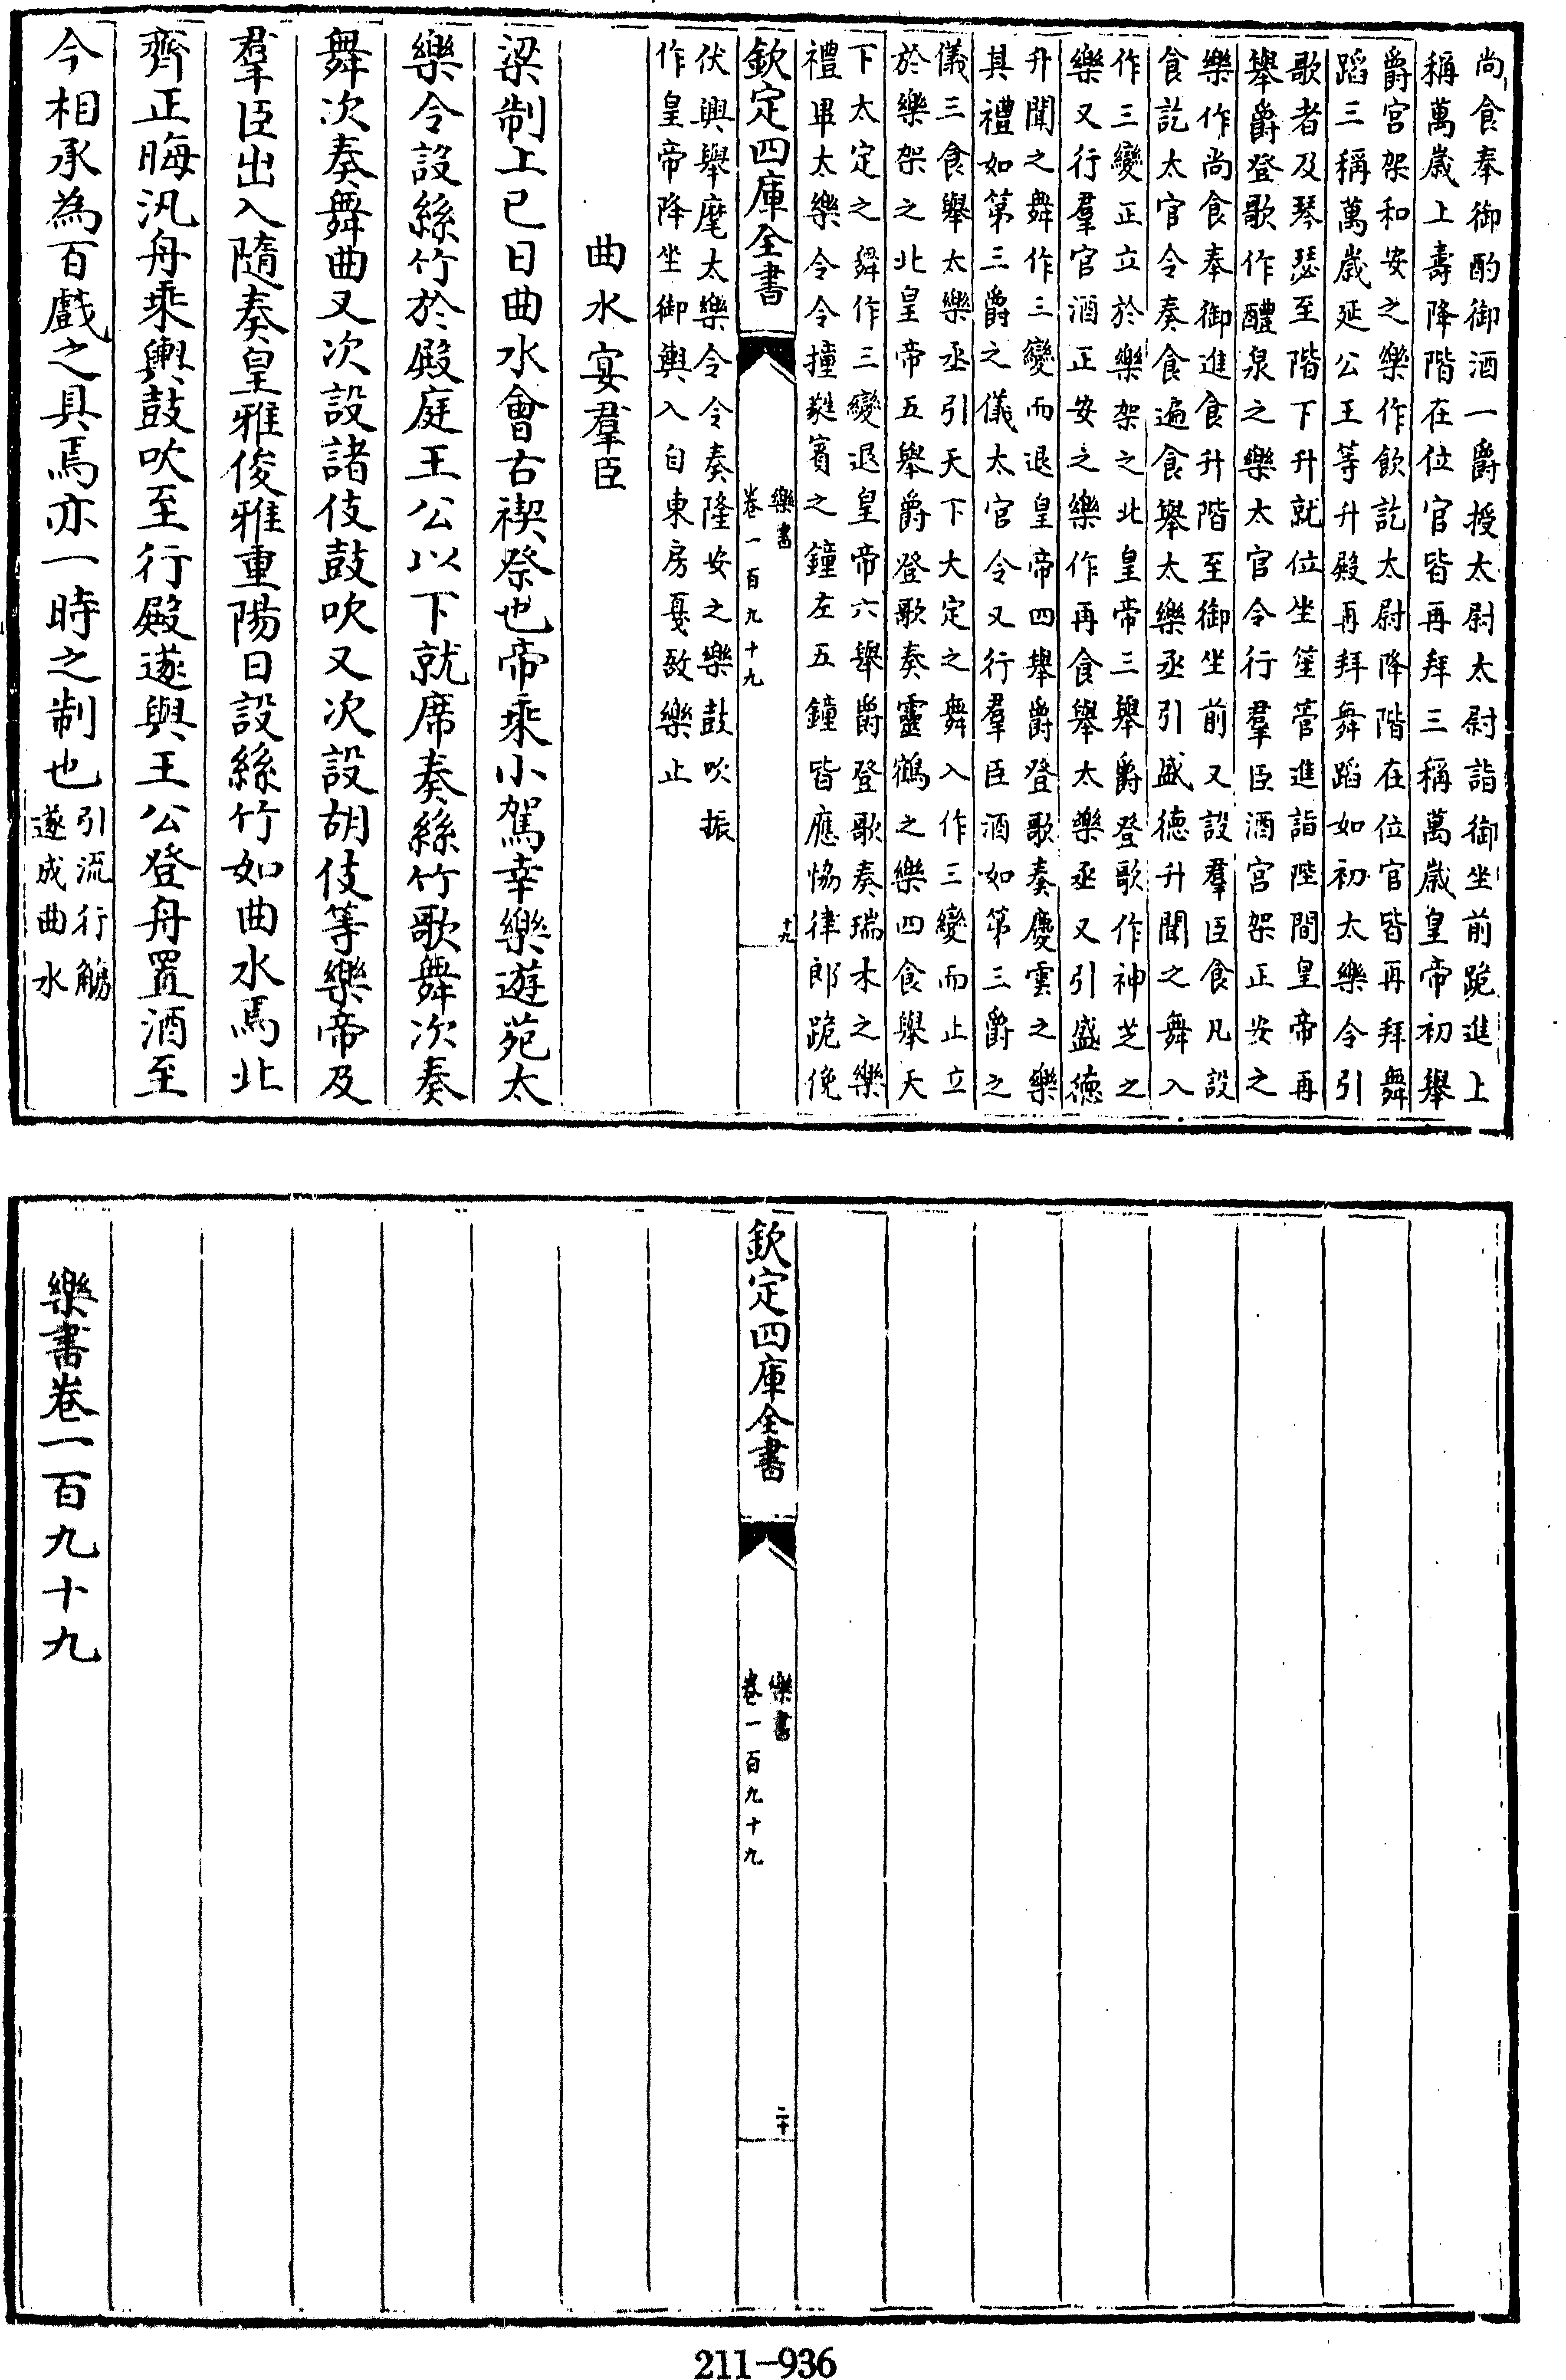 尚食奉御酌御酒一爵授太尉太尉詣御坐前跪進上
稱萬歲上壽降階在位官皆再拜三稱萬歲皇帝初舉
爵宮架和安之樂作飲訖太尉降階在位官皆再拜舞
蹈三稱萬歲延公王等升殿再拜舞蹈如初太樂令引
歌者及琴瑟至階下升就位坐笙管進詣陛間皇帝再
舉爵登歌作醴泉之樂太官令行羣臣酒宮架正安之
樂作尚食奉御進食升階至御坐前又設羣臣食凡設
食訖太官令奏食遍食舉太樂丞引盛德升聞之舞入
作三變正立於樂架之北皇帝三舉爵登歌作神芝之
樂又行羣官酒正安之樂作再食舉太樂丞又引盛德
升聞之舞作三變而退皇帝四舉爵登歌奏慶雲之樂
其禮如第三爵之儀太官令又行羣臣酒如第三爵之
儀三食舉太樂丞引天下大定之舞入作三變而止立
於樂架之北皇帝五舉爵登歌奏靈鶴之樂四食舉天
下太定之舞作三變退皇帝六舉爵登歌奏瑞木之樂
禮畢太樂令令撞蕤賓之鐘左五鐘皆應恊律郎跪俛
欽定四庫全書
樂書
卷一百九十九
十九
伏興舉麾太樂令令奏隆安之樂鼓吹振
作皇帝降坐御輿入自東房戛敔樂止
曲水宴羣臣
梁制上巳日曲水會古禊祭也帝乘小駕幸樂遊苑太
樂令設絲竹於殿庭王公以下就席奏絲竹歌舞次奏
舞次奏舞曲又次設諸伎鼓吹又次設胡伎等樂帝及
羣臣出入隨奏皇雅俊雅重陽日設絲竹如曲水焉北
齊正晦汎舟乘輿鼓吹至行殿遂與王公登舟置酒至
今相承為百戲之具焉亦一時之制也
引流行觴
遂成曲水
欽定四庫全書
樂書
卷一百九十九
二十
樂書卷一百九十九
211-936